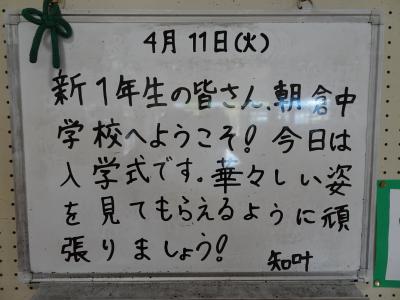 4月11日(火)
新1年生の皆さん、朝倉中
学校へようこそ!今日は
入学式です。華々しい姿
を見てもらえるように頑
張りましょう!
知叶